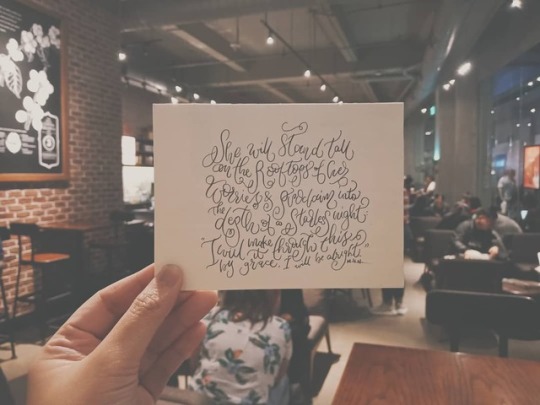 She will Stand tall
on the Rooftops of her
Worries & proclaim into
The depth of a Starless night:
"I will make it through this.
by grace, I will be alright."